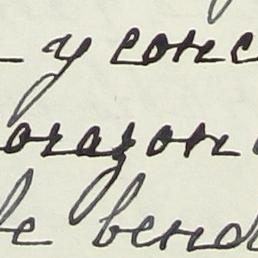 y conc
orazon
le bend